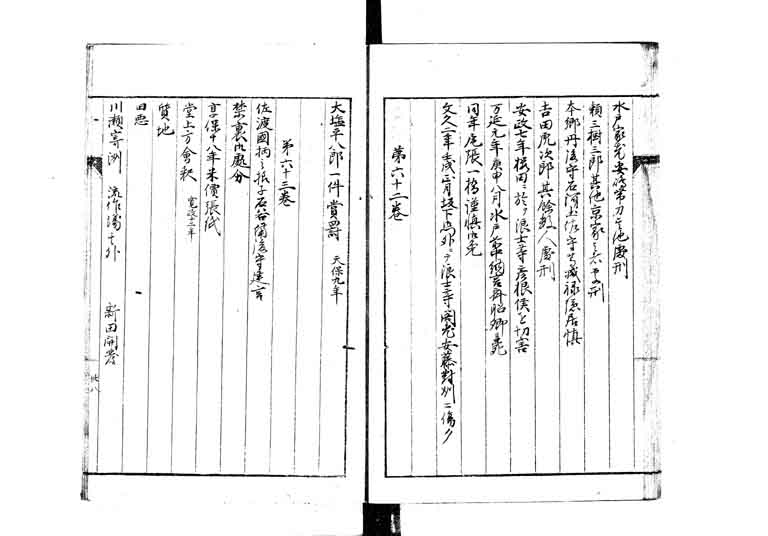 水戸家老安島帯刀其他處刑
頼三樹三郎其他京家之者処刑
本郷丹後守石河土佐守等減禄隠居慎
吉田虎次郎其餘数人處刑
安政七年桜田ニ於テ浪士等彦根侯を切害
万延元年庚申八月水戸前中納言斉昭卿薨
同年尾張一橋謹慎御免
文久二年壬戌正月坂下馬外ニテ浪士等閣老安藤對州ニ傷ク
第六十二巻
大塩平八郎一件賞罰 天保九年
第六十三巻
佐渡國柄之振子石谷備後守建言
禁裏御處分
享保十八年米價張紙
堂上方會釈 寛政三年
質地
田惣
川瀬寄洲 流作場其外 新田開発
卅八